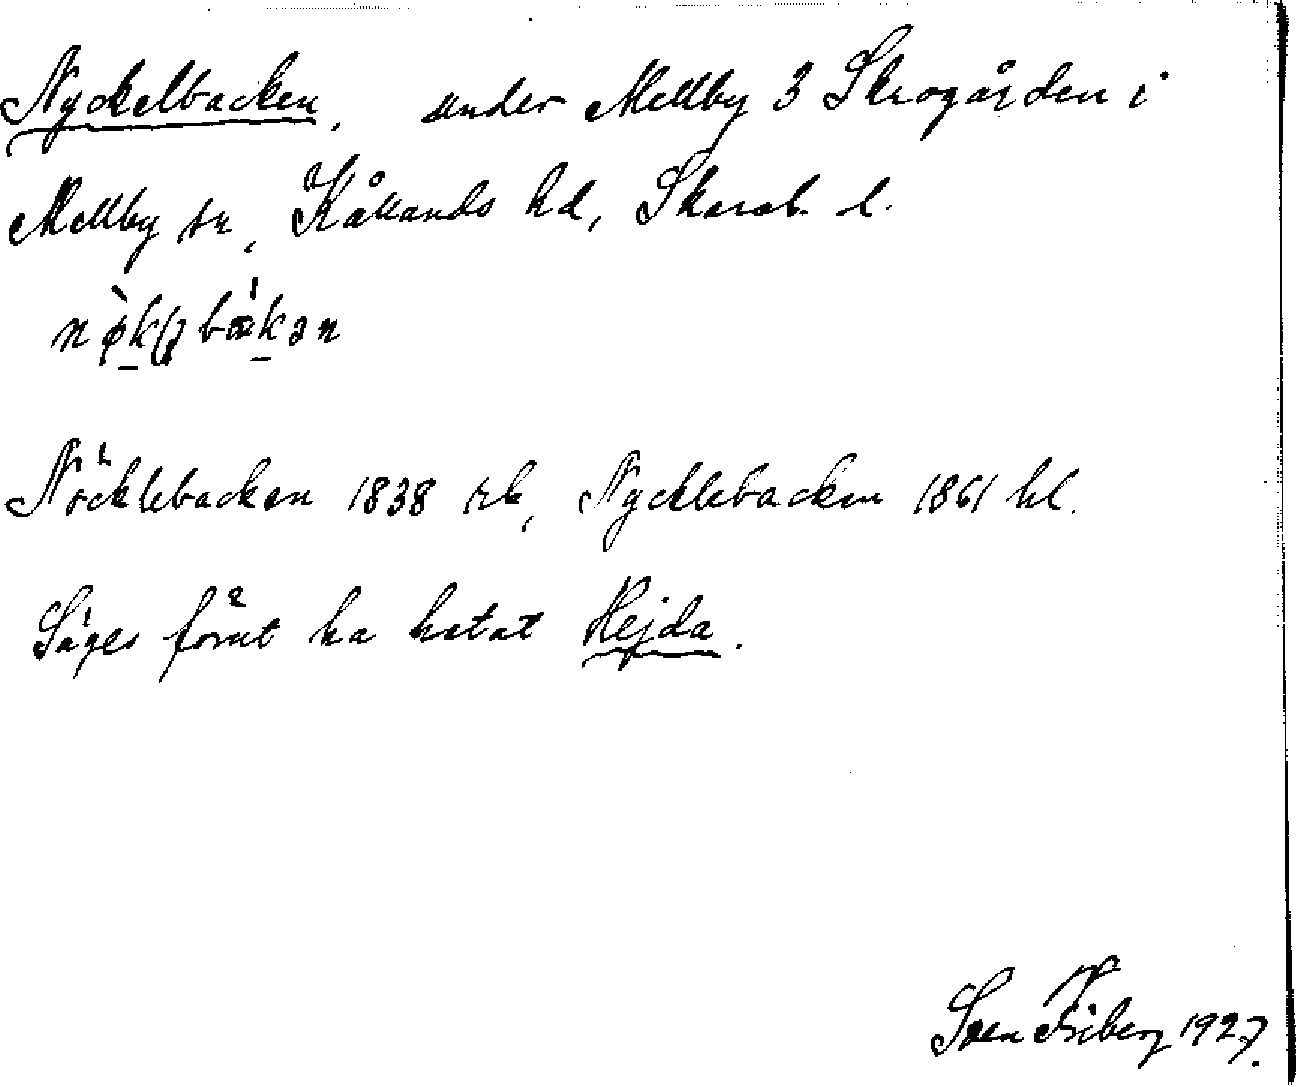 Nyckelbacken, under Mellby 3 Skrogården i
Mellby sn, Kållands hd, Skarab. l.
Nöcklebacken 1838 rk, Nycklebacken 1861 hl.
Säges förut ha hetat Hejda.
Sven Friberg 1927.